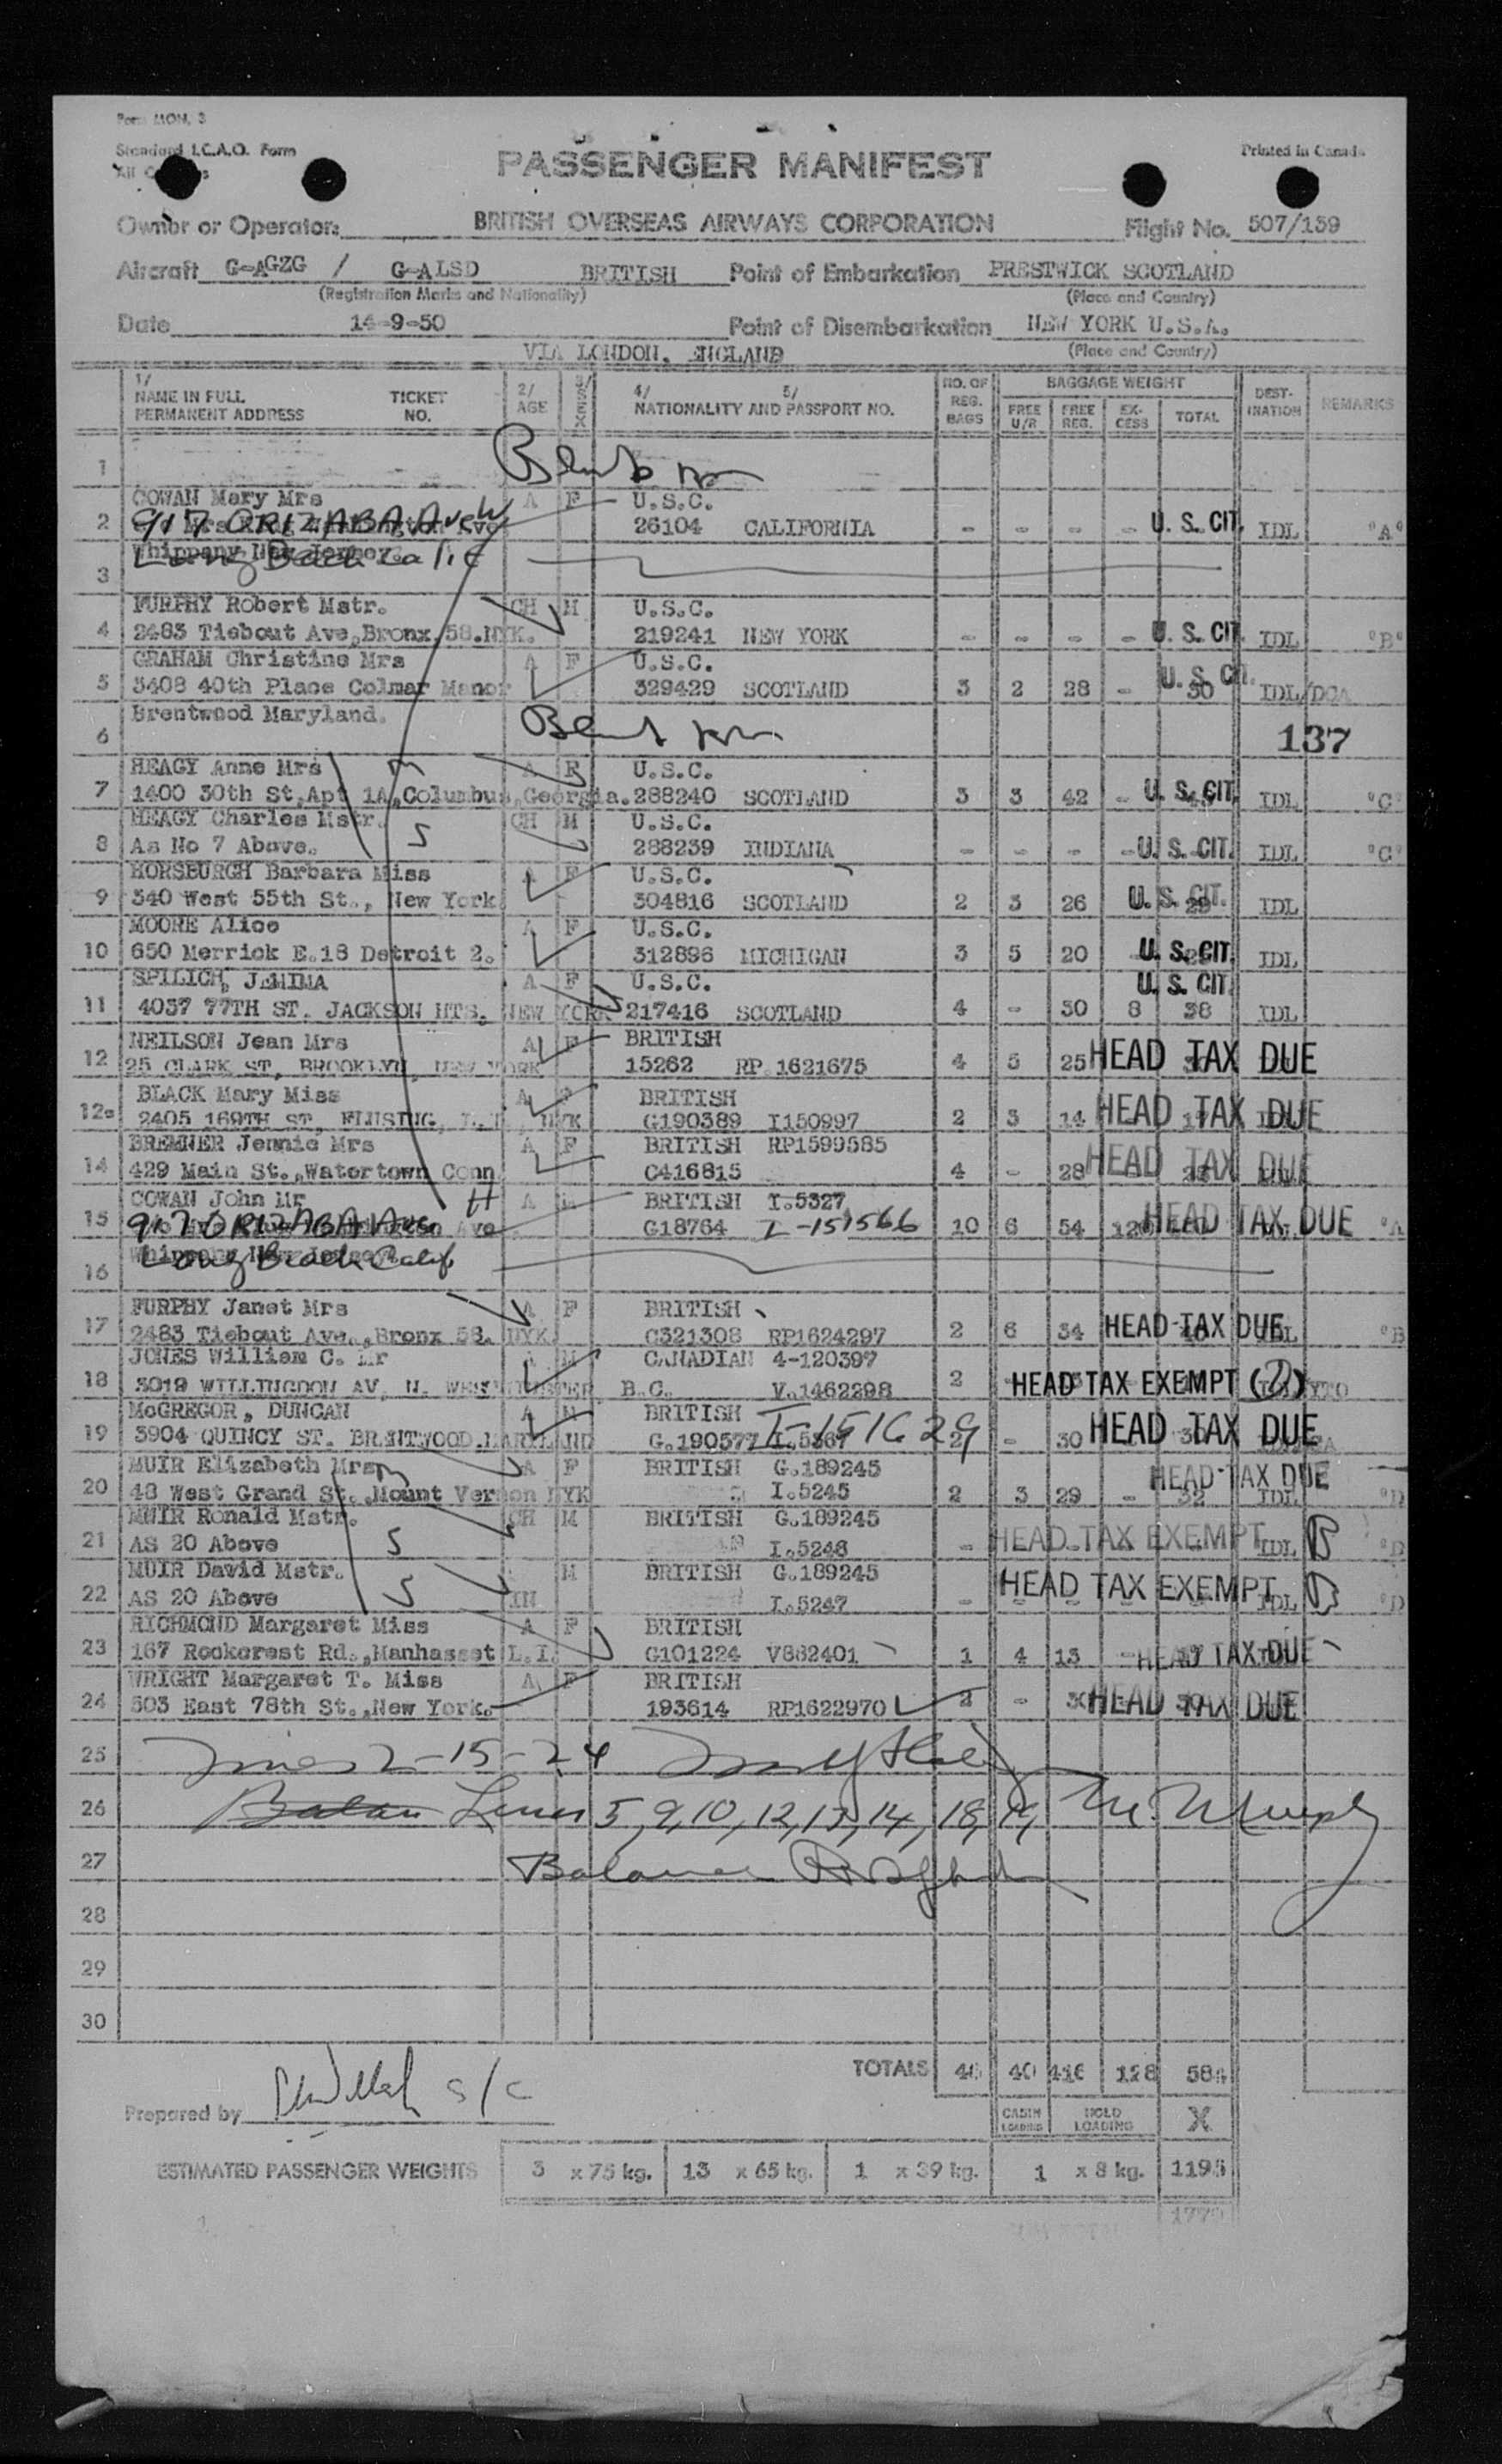 Form MON. 3
Standard I.C.A.O. Form
All
PASSENGER MANIFEST
Printed in Canada
Owner or Operator: BRITISH OVERSEAS AIRWAYS CORPORATION Flight No. 507/159
Aircraft G-AGZG / G-ALSD BRITISH Point of Embarkation PRESTWICK SCOTLAND
(Registration Marks and Nationality) (Place and Country)
Date 14-9-50 Point of Disembarkation NEW YORK U.S.A.
VIA LONDON, ENGLAND (Place and Country)
1/ NAME IN FULL PERMANENT ADDRESS TICKET NO. 2/ AGE 3/ SEX 4/ 5/ NATIONALITY AND PASSPORT NO. NO. OF REG. BAGS BAGGAGE WEIGHT FREE U/R FREE REG. EX-CESS TOTAL DEST-INATION REMARKS
1
COWAN Mary Mrs A F U.S.C.
2 917 ORIZABA Ave 26104 CALIFORNIA - - - - U. S. CIT. IDL "A"
3 Long Beach Calif
FURPHY Robert Mstr. CH M U.S.C.
4 2483 Tiebout Ave,Bronx,58.NYK. 219241 NEW YORK - - - - U. S. CIT. IDL "B"
GRAHAM Christine Mrs A F U.S.C.
5 3408 40th Place Colmar Manor 329429 SCOTLAND 3 2 28 - U. S. CIT. 30 IDL/DCA
6 Brentwood Maryland. 137
HEAGY Anne Mrs m A F U.S.C.
7 1400 30th St,Apt 1A,Columbus,Georgia. 288240 SCOTLAND 3 3 42 - U. S. CIT. IDL "C"
HEAGY Charles Mstr. CH M U.S.C.
8 As No 7 Above. S 288239 INDIANA - - - - U. S. CIT. IDL "C"
HORSBURGH Barbara Miss A F U.S.C.
9 340 West 55th St., New York 304816 SCOTLAND 2 3 26 U. S. CIT. 29 IDL
MOORE Alice A F U.S.C.
10 650 Merrick E.18 Detroit 2. 312896 MICHIGAN 3 5 20 U. S. CIT. IDL
SPILICH, JEMINA A F U.S.C. U. S. CIT.
11 4037 77TH ST. JACKSON HTS, NEW YORK 217416 SCOTLAND 4 - 30 8 38 IDL
NEILSON Jean Mrs A F BRITISH
12 25 CLARK ST, BROOKLYN, NEW YORK 15262 RP 1621675 4 5 25 HEAD TAX DUE
BLACK Mary Miss A F BRITISH
12a 2405 169TH ST, FLUSING, L.I, NYK G190389 I150997 2 3 14 HEAD TAX DUE
BREMNER Jennie Mrs A F BRITISH RP1599585
14 429 Main St.,Watertown Conn C416815 4 - 28 HEAD TAX DUE
COWAN John Mr H A M BRITISH I.5327
15 917 ORIZABA Ave G18764 I-151566 10 6 54 120 HEAD TAX DUE "A
16 Long Beach Calif
FURPHY Janet Mrs A F BRITISH
17 2483 Tiebout Ave.,Bronx 58. NYK. C321308 RP1624297 2 6 34 HEAD TAX DUE "B
JONES William C. Mr A M CANADIAN 4-120397
18 3019 WILLINGDON AV, N. WESTMINSTER B.C. V.1462298 2 HEAD TAX EXEMPT (2) YTO
McGREGOR, DUNCAN A M BRITISH I-151629
19 3904 QUINCY ST. BRENTWOOD.MARYLAND G.190577 I.5367 2 - 30 HEAD TAX DUE
MUIR Elizabeth Mrs m A F BRITISH G.189245
20 48 West Grand St.,Mount Vernon NYK I.5245 2 3 29 - 32 HEAD TAX DUE IDL "D
MUIR Ronald Mstr. CH M BRITISH G.189245
21 AS 20 Above S I.5246 - HEAD TAX EXEMPT IDL B "D
MUIR David Mstr. M BRITISH G.189245
22 AS 20 Above S IN I.5247 - HEAD TAX EXEMPT IDL B "D
RICHMOND Margaret Miss A F BRITISH
23 167 Rockcrest Rd.,Manhasset L.I. G101224 V882401 1 4 13 - HEAD TAX DUE
WRIGHT Margaret T. Miss A F BRITISH
24 503 East 78th St.,New York. 193614 RP1622970 2 - 30 HEAD TAX DUE
25 Lines 2-15-24
26 Lines 5, 9, 10, 12, 13, 14, 18, 19, M. Murphy
27 Balance
28
29
30
TOTALS 46 40 416 128 584
Prepared by s/c CABIN LOADING HOLD LOADING X
ESTIMATED PASSENGER WEIGHTS 3 x 75 kg. 13 x 65 kg. 1 x 39 kg. 1 x 8 kg. 1195